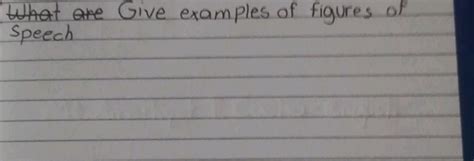 What are Give examples of figures of
Speech